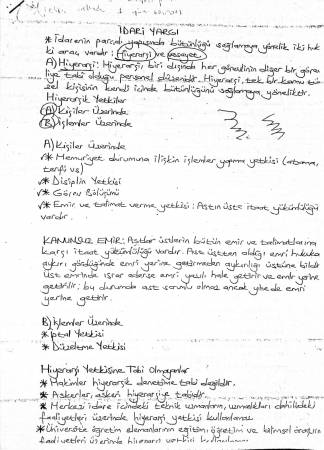 İDARİ YARGI
* İdarenin parçalı yapısında bütünlüğü sağlamaya yönelik iki huk
ki araç vardır: Hiyerarşi ve vesayet.
A) Hiyerarşi: Hiyerarşi, biri dışında her görevlinin diğer bir görev
liye tabi olduğu personel düzenidir. Hiyerarşi, tek bir kamu tü
zel kişisinin kendi içinde bütünlüğünü sağlamaya yöneliktir.
Hiyerarşik Yetkiler
A) Kişiler Üzerinde
B) İşlemler Üzerinde
A) Kişiler Üzerinde
* Memuriyet durumuna ilişkin işlemler yapma yetkisi (atama,
terfi vs)
* Disiplin Yetkisi
* Görev Bölüşümü
* Emir ve talimat verme yetkisi: Astın üste itaat yükümlülüğü
vardır.
KANUNSUZ EMİR: Astlar üstlerin bütün emir ve talimatlarına
karşı itaat yükümlülüğü vardır. Ast üstten aldığı emri hukuka
aykırı gördüğünde emri yerine getirmeden aykırılığı üstüne bildirir
Üst emrinde ısrar ederse emri yazılı hale getirir ve emir yerine
getirilir; bu durumda ast sorumlu olmaz ancak yine de emri
yerine getirir.
B) İşlemler Üzerinde
* İptal Yetkisi
* Düzeltme Yetkisi
Hiyerarşi Yetkisine Tabi Olmayanlar
* Hakimler hiyerarşik denetime tabi değildir.
* Askerler, askeri hiyerarşiye tabidir.
* Merkezi idare içindeki teknik uzmanların, uzmanlıkları dahilindeki
faaliyetleri üzerinde hiyerarşi yetkisi kullanılamaz
* Üniversite öğretim elemanlarının eğitim öğretim ve bilimsel araştırma
faaliyetleri üzerinde hiyerarşi yetkisi kullanılamaz